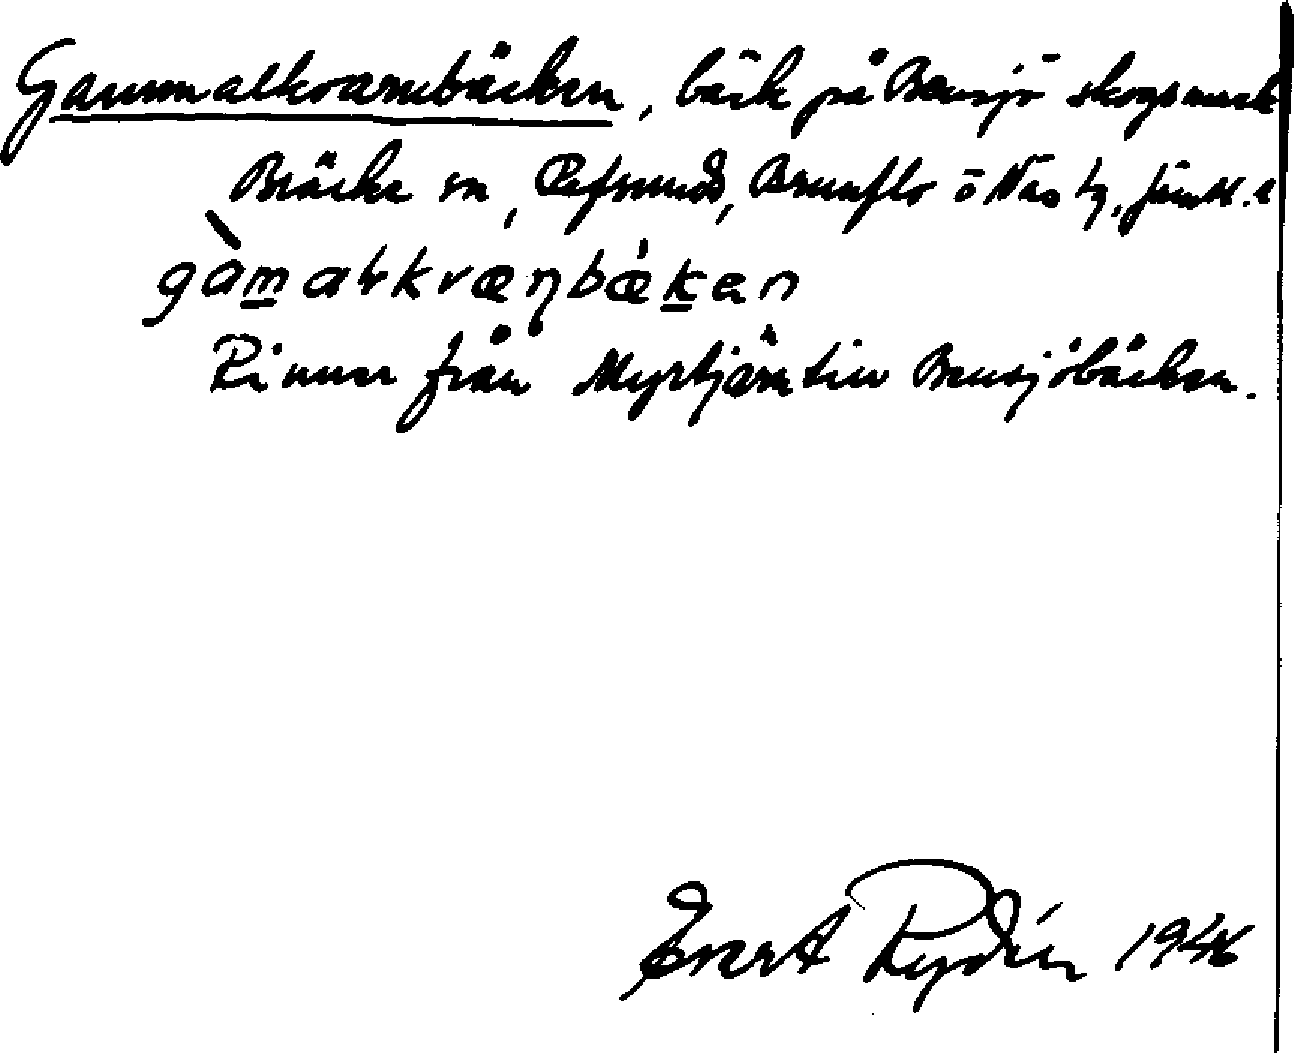 Gammalkvarnbäcken, bäck på Bensjö skogsmark
Bräcke sn, Refsunds, Brunflo o Näs tg, Jämtl. l
gàmalkvæɳbækən
Rinner från Myrtjärn till Bensjöbäcken.
Evert Rydén 1946